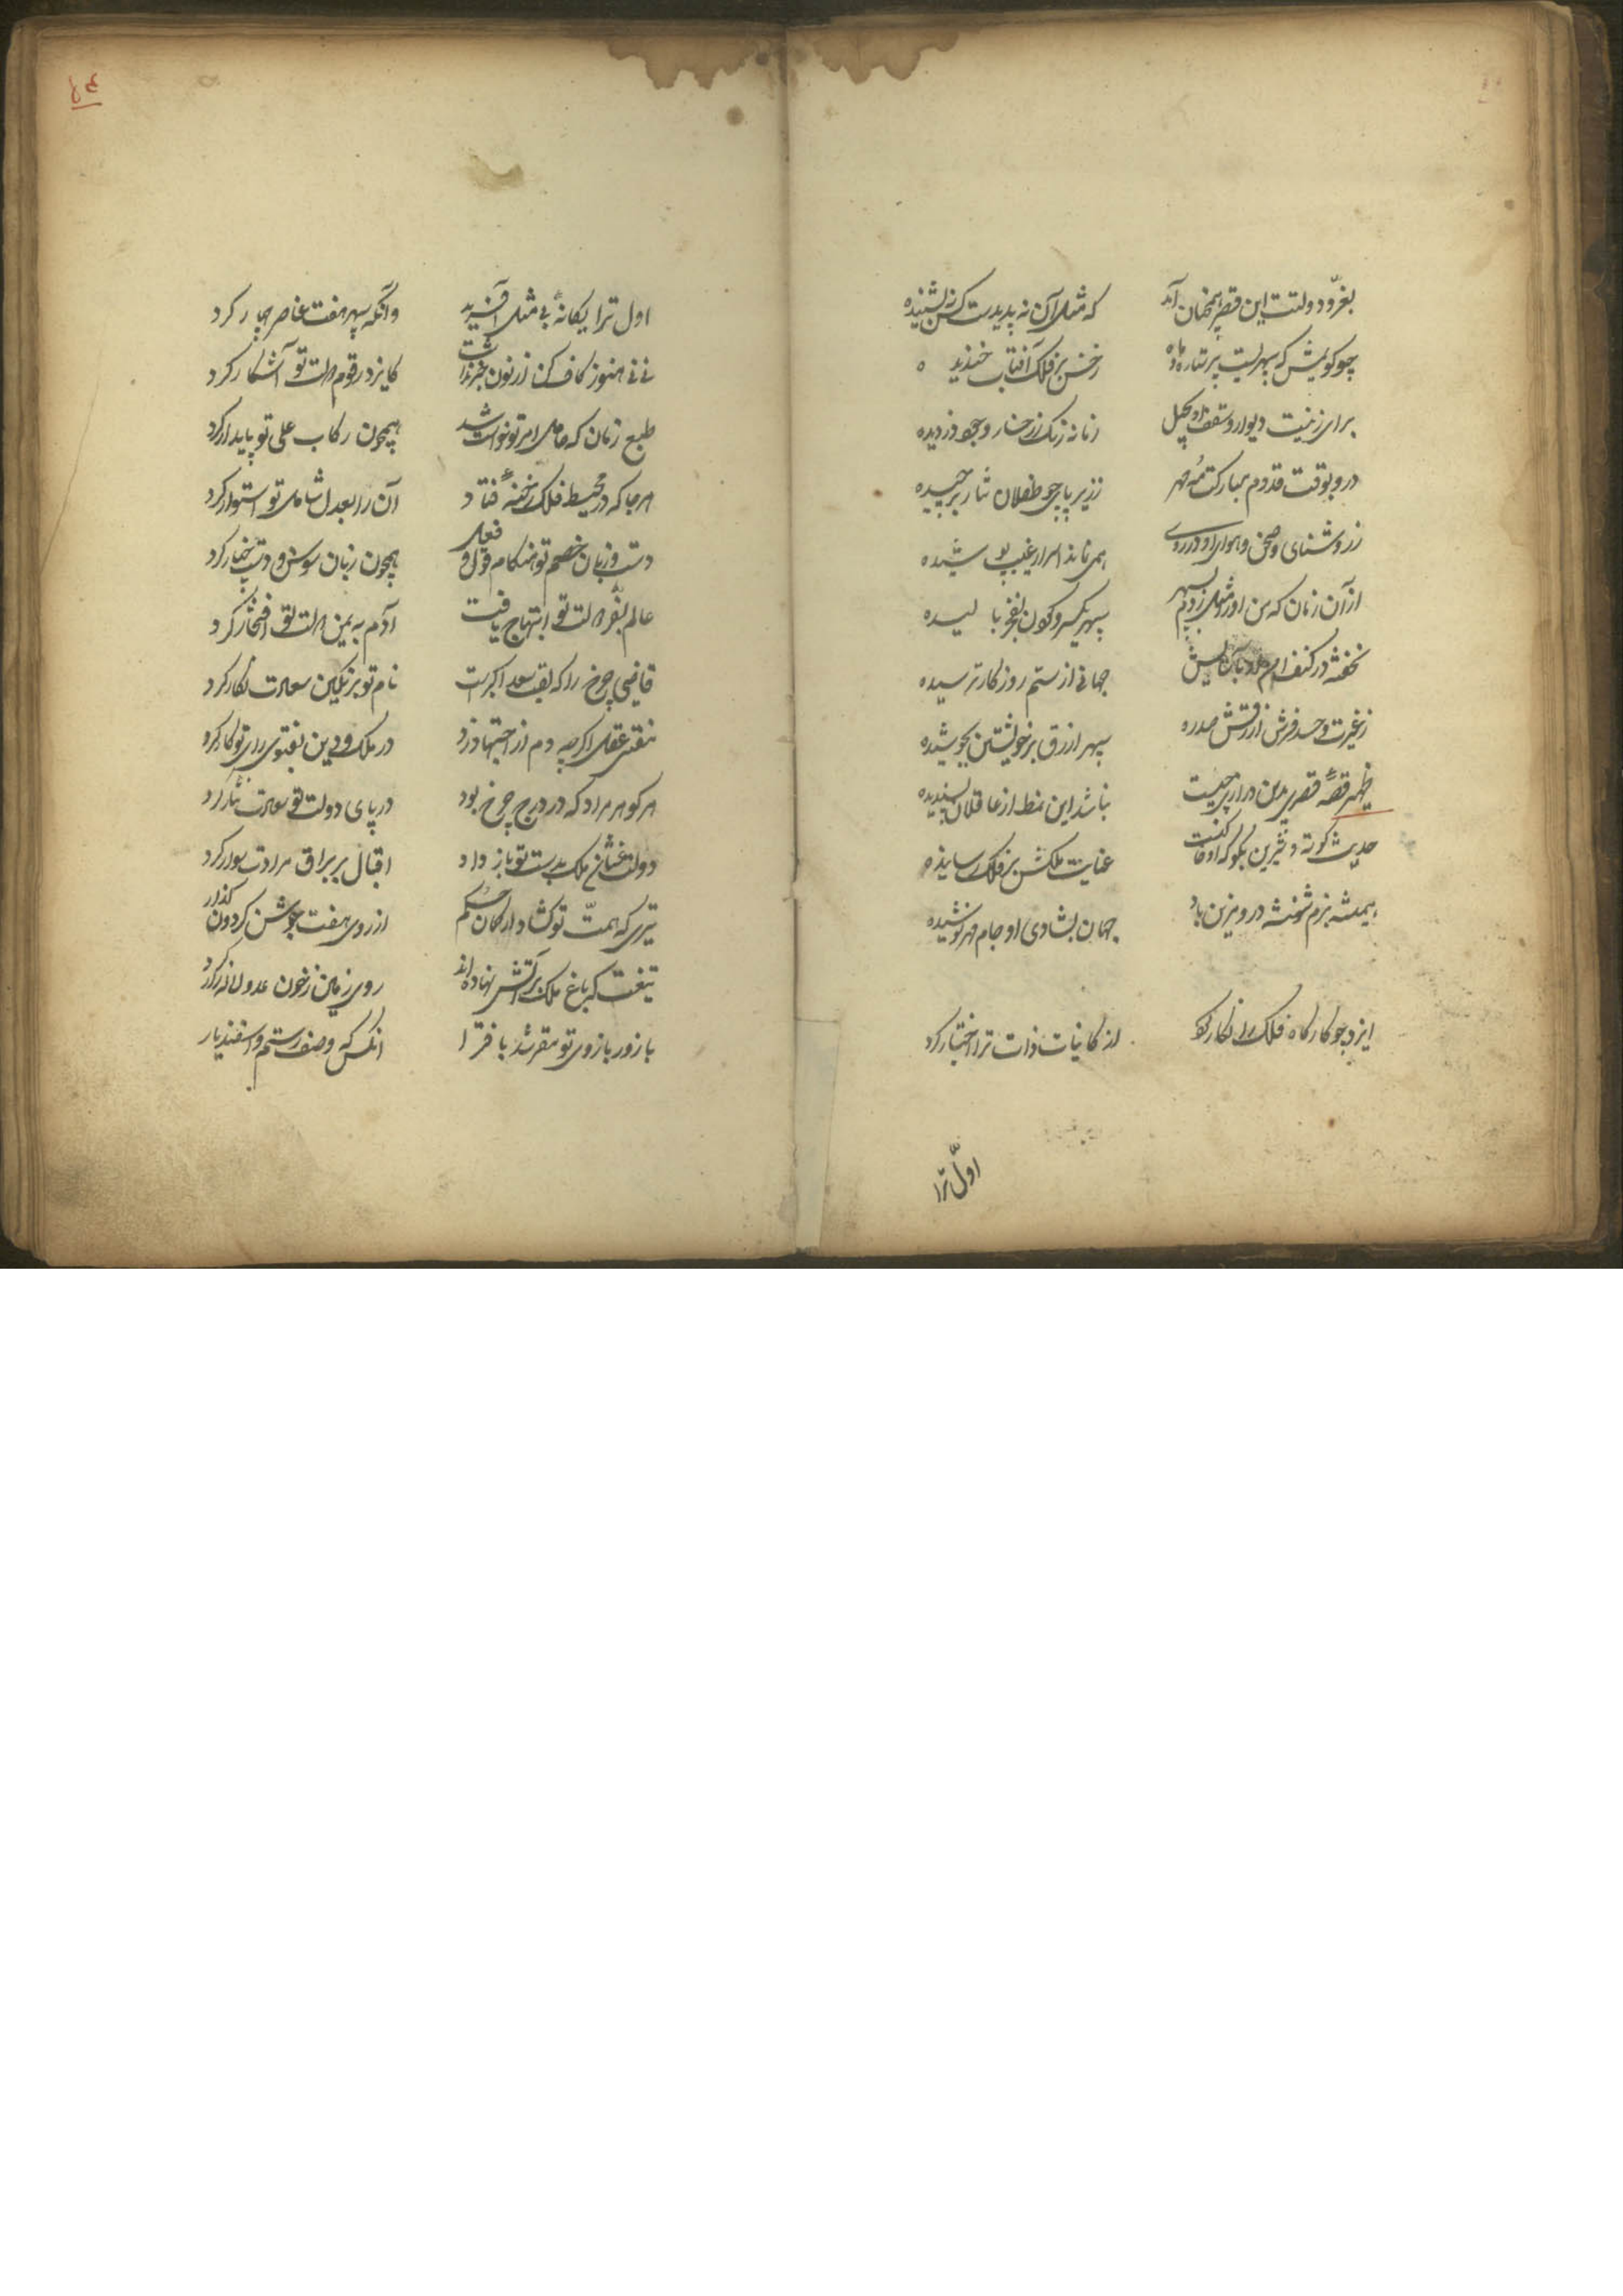 بغرّ و دولتت این قصر همچنان آمد که مثل آن نه پدیدست کس نه بشنیده
چو کویمش که سپهریست پر ستاره و ماه رخش بر فلک آفتاب خندیده
برای زینت دیوار و سقف او زمانه رنک ز رخسار وجوه دزدیده
درو بوقت قدوم مبارکت مه و مهر ز زیر پای چو طفلان نثار برچیده
ز روشنای و صحن و هوا همی نماند اسرار غیب پوشیده
از آن زمان که من او را سپهر سپهر یکسر و کون بفخر بالیده
نخفته در کنف جهانی از ستم روزکار ترسیده
زغیرت و حسد فرش ازرقش صد ره سپهر ازرق بر خویشتن بجوشیده
ظهیر قصّه قصر بدین درازی چیست نباشد این نمط از عاقلان پسندیده
حدیث کوته و شیرین بکو عنایت ملکش بر فلک رسانیده
همیشه بزم شهنشه درو مزین باد جهان بشادی او جام مهر نوشیده
ایزد چو کارکاه فلک را نکار کرد از کاینات ذات ترا اختیار کرد
اول ترا
اول ترا یکانهٔ بی مثل آفرید وانکه سپهر هفت عناصر چهار کرد
نی نی هنوز کاف کن از نون خبر نداشت کایزد رقوم دولت تو آشکار کرد
طبع زمان که حامل امر تو خواست شد همچون رکاب علی تو پایدار کرد
هرجا که در محیط فلک رخنهٔ فتاد آن را بعدل شامل تو استوار کرد
دست و زبان خصم تو هنکام قول و فعل همچون زبان سوسن و دست چنار کرد
عالم بفرّ دولت تو ابتهاج یافت آدم به یمن دولت تو افتخار کرد
قاضی چرخ را که لقب سعد اکبرست نام تو بر نکین سعادت نکار کرد
مفتی عقل اکرچه دم از اجتهاد زد در ملک و دین بفتوی رای تو کار کرد
هر کوهر مراد که در درج چرخ بود در پای دولت تو سعادت نثار کرد
دولت عنان ملک بدست تو باز داد اقبال بر براق مرادت سوار کرد
تیری که همّت تو کشاد از کمان حکم از روی هفت جوشن کردون کذار کرد
تیغت که باغ ملک بر آتش نهاده‌اند روی زمین ز خون عدو لاله‌زار کرد
با زور بازوی تو مقر شد بافترا آنکس که وصف رستم و اسفندیار